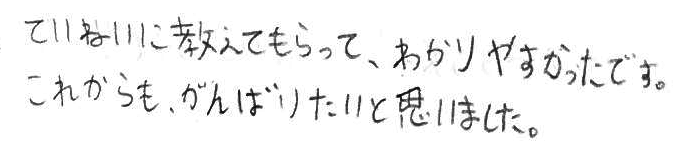 ていねいに教えてもらって、わかりやすかったです。
これからも、がんばりたいと思いました。